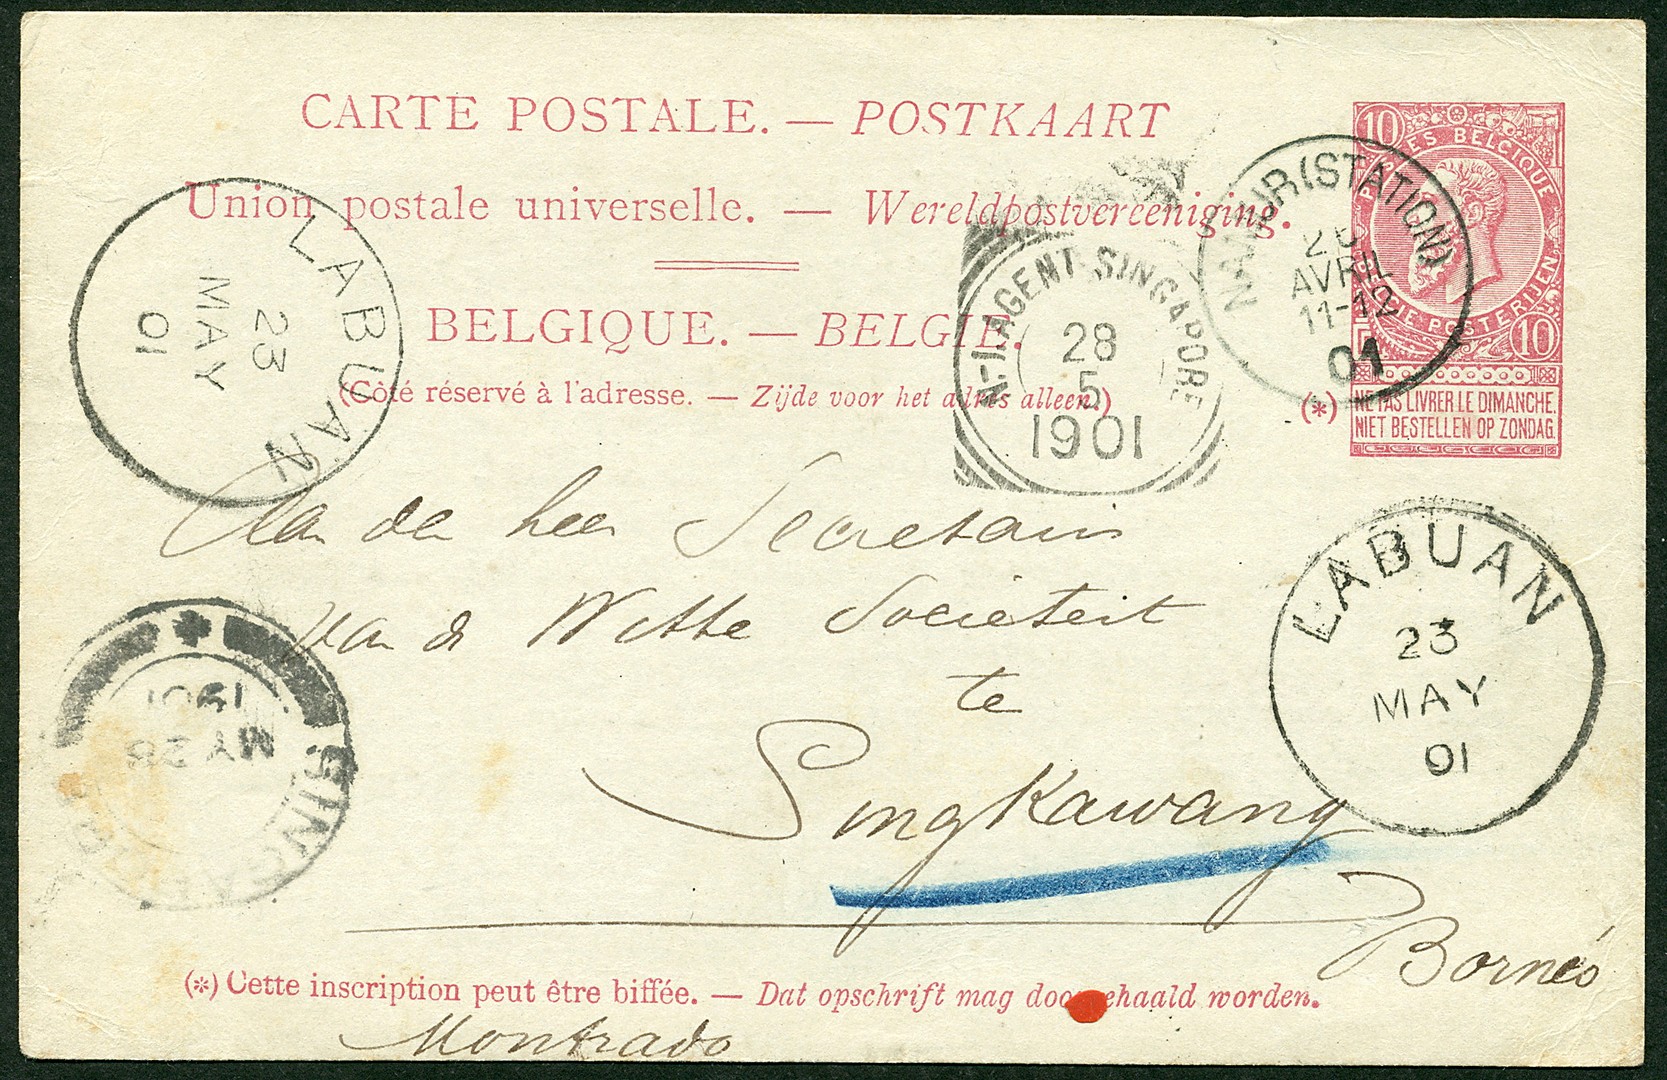 CARTE POSTALE. — POSTKAART
Union postale universelle. — Wereldpostvereeniging.
BELGIQUE. — BELGIË.
(Côté réservé à l'adresse. — Zijde voor het adres alleen.)
10
POSTES BELGIQUE
BELGIE POSTERIJEN
10
(*) NE PAS LIVRER LE DIMANCHE.
NIET BESTELLEN OP ZONDAG.
NAMUR (STATION)
AVRIL
11-12
01
N-I. AGENT SINGAPORE
28
5
1901
LABUAN
23
MAY
01
LABUAN
23
MAY
01
SINGAPORE
MY 28
1901
Aan den heer Secretaris
van de Witte Societeit
te
Singkawang
Borneo
(*) Cette inscription peut être biffée. — Dat opschrift mag doorgehaald worden.
Montrado